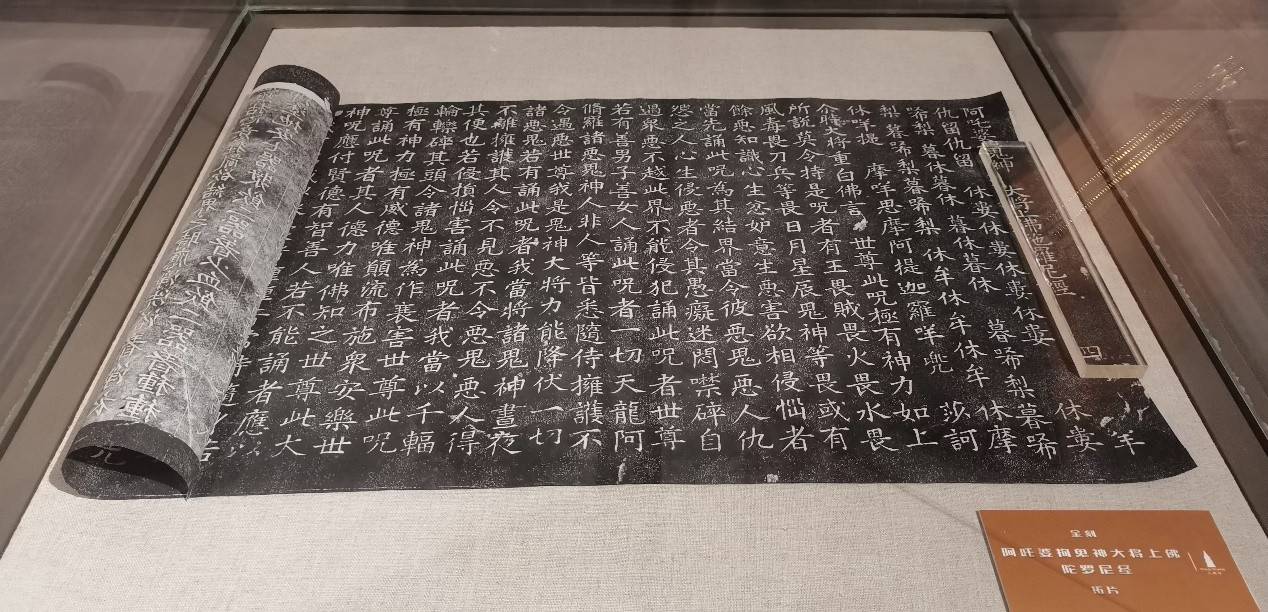 大將上佛陀羅尼經 四
仇留仇留 休婁休婁休婁休婁 休婁
唏梨 暮休暮休 暮休暮休 暮唏梨暮唏
梨 暮唏梨暮唏梨 休牟休牟休牟 休摩
休咩提 摩咩思摩阿提迦羅咩兜 莎訶
尒時大將重白佛言 世尊此呪極有神力如上
所說莫令持是呪者有王畏賊畏火畏水畏
風毒畏刀兵等畏日月星辰鬼神等畏或有
餘惡知識心生忿妒意生惡害欲相侵惱者
當先誦此呪為其結界當令彼惡鬼惡人仇
怨之人心生侵惡者令其愚癡迷悶噤碎自
過衆惡不越此界不能侵犯誦此呪者世尊
若有善男子善女人誦此呪者一切天龍阿
脩羅諸惡鬼神人非人等皆悉隨侍擁護不
令遇惡世尊我是鬼神大將力能降伏一切
諸惡鬼若有誦此呪者我當將諸鬼神晝夜
不離擁護其人令不見惡不令惡鬼惡人得
其便也若侵損惱害誦此呪者我當以千輻
輪轢碎其頭令諸鬼神為作衰害世尊此呪
極有神力極有威德唯願流布施衆安樂世
尊誦此呪者其人德力唯佛知之世尊此大
神呪應付賢德有智善人若不能誦者應以
咒
全刻
阿吒婆拘鬼神大将上佛
陀罗尼经
拓片